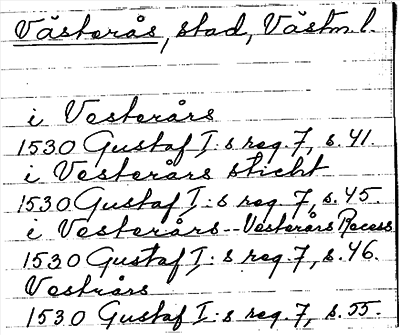 Västerås, stad, Västm l.
i Vesterårs
1530 Gustaf I:s reg. 7, s. 41.
i Vesterårs sticht
1530 Gustaf I:s reg. 7, s. 45.
i Vesterårs -- Vesterårs Recess
1530 Gustaf I:s reg. 7, s. 46.
Vestrårs
1530 Gustaf I:s reg. 7, s. 55.